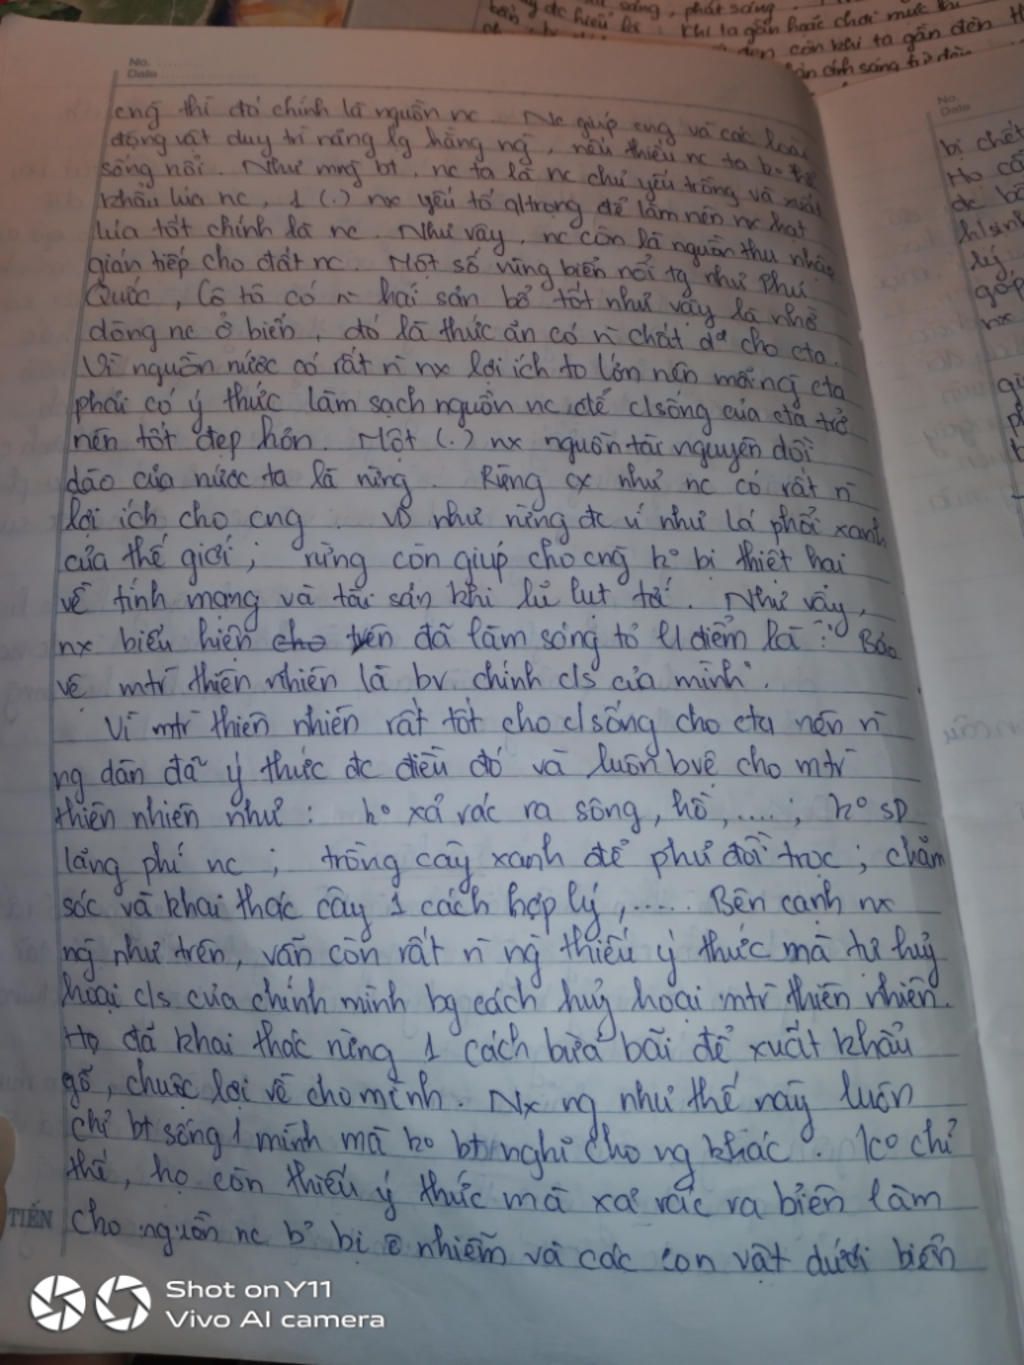 No.
Date
cng thì đó chính là nguồn nc. Nc giúp cng và các loài
động vật duy trì năng lg hằng ng, nếu thiếu nc ta ko thể
sống nổi. Như mng bt, nc ta là nc chủ yếu trồng và xuất
khẩu lúa nc, 1 (.) nx yếu tố qtrọng để làm nên nx hạt
lúa tốt chính là nc. Như vậy, nc còn là nguồn thu nhập
gián tiếp cho đất nc. Một số vùng biển nổi tg như Phú
Quốc, Cô tô có n hải sản bổ tốt như vậy là nhờ
dòng nc ở biển, đó là thức ăn có n chất d² cho cta.
Vì nguồn nước có rất n nx lợi ích to lớn nên mỗi ng cta
phải có ý thức làm sạch nguồn nc để c/sống của cta trở
nên tốt đẹp hơn. Một (.) nx nguồn tài nguyên dồi
dào của nước ta là rừng. Rừng cx như nc có rất n
lợi ích cho cng. Vd như rừng đc ví như lá phổi xanh
của thế giới; rừng còn giúp cho cng ko bị thiệt hại
về tính mạng và tài sản khi lũ lụt tới. Như vậy,
nx biểu hiện cho trên đã làm sáng tỏ l/điểm là: "Bảo
vệ mtr thiên nhiên là bv chính c/s của mình".
Vì mtr thiên nhiên rất tốt cho c/sống cho cta nên n
ng dân đã ý thức đc điều đó và luôn bvệ cho mtr
thiên nhiên như: ko xả rác ra sông, hồ,....; ko sD
lãng phí nc; trồng cây xanh để phủ đồi trọc; chăm
sóc và khai thác cây 1 cách hợp lý,..... Bên cạnh nx
ng như trên, vẫn còn rất n ng thiếu ý thức mà tự huỷ
hoại c/s của chính mình bg cách huỷ hoại mtr thiên nhiên.
Họ đã khai thác rừng 1 cách bừa bãi để xuất khẩu
gỗ, chuộc lợi về cho mình. Nx ng như thế này luôn
chỉ bt sống 1 mình mà ko bt nghĩ cho ng khác. Ko chỉ
thế, họ còn thiếu ý thức mà xả rác ra biển làm
cho nguồn nc bỉ bị ô nhiễm và các con vật dưới biển
TIẾN
No.
Date
bị chết
Họ cố
lý
góp
nx
Shot on Y11
Vivo AI camera